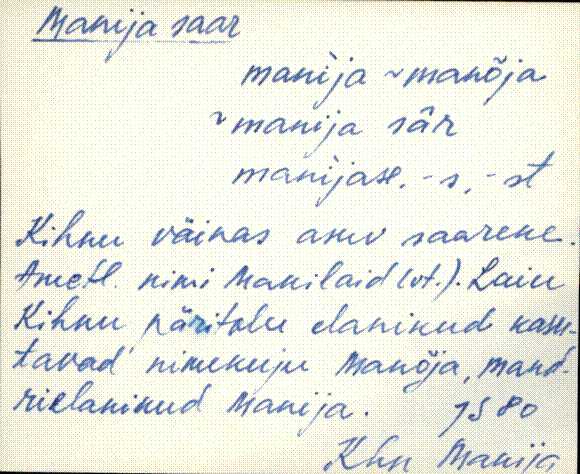 Manija saar
manìja ~ manõja
~ manija sâr
manìjasse, -s, -st
Kihnu väinas asuv saareke.
Ametl. nimi Manilaid (vt.). Laiu
Kihnu päritolu elanikud kasu-
tavad nimekuju Manõja, mand-
rielanikud Manija. 1980
Khn Manija